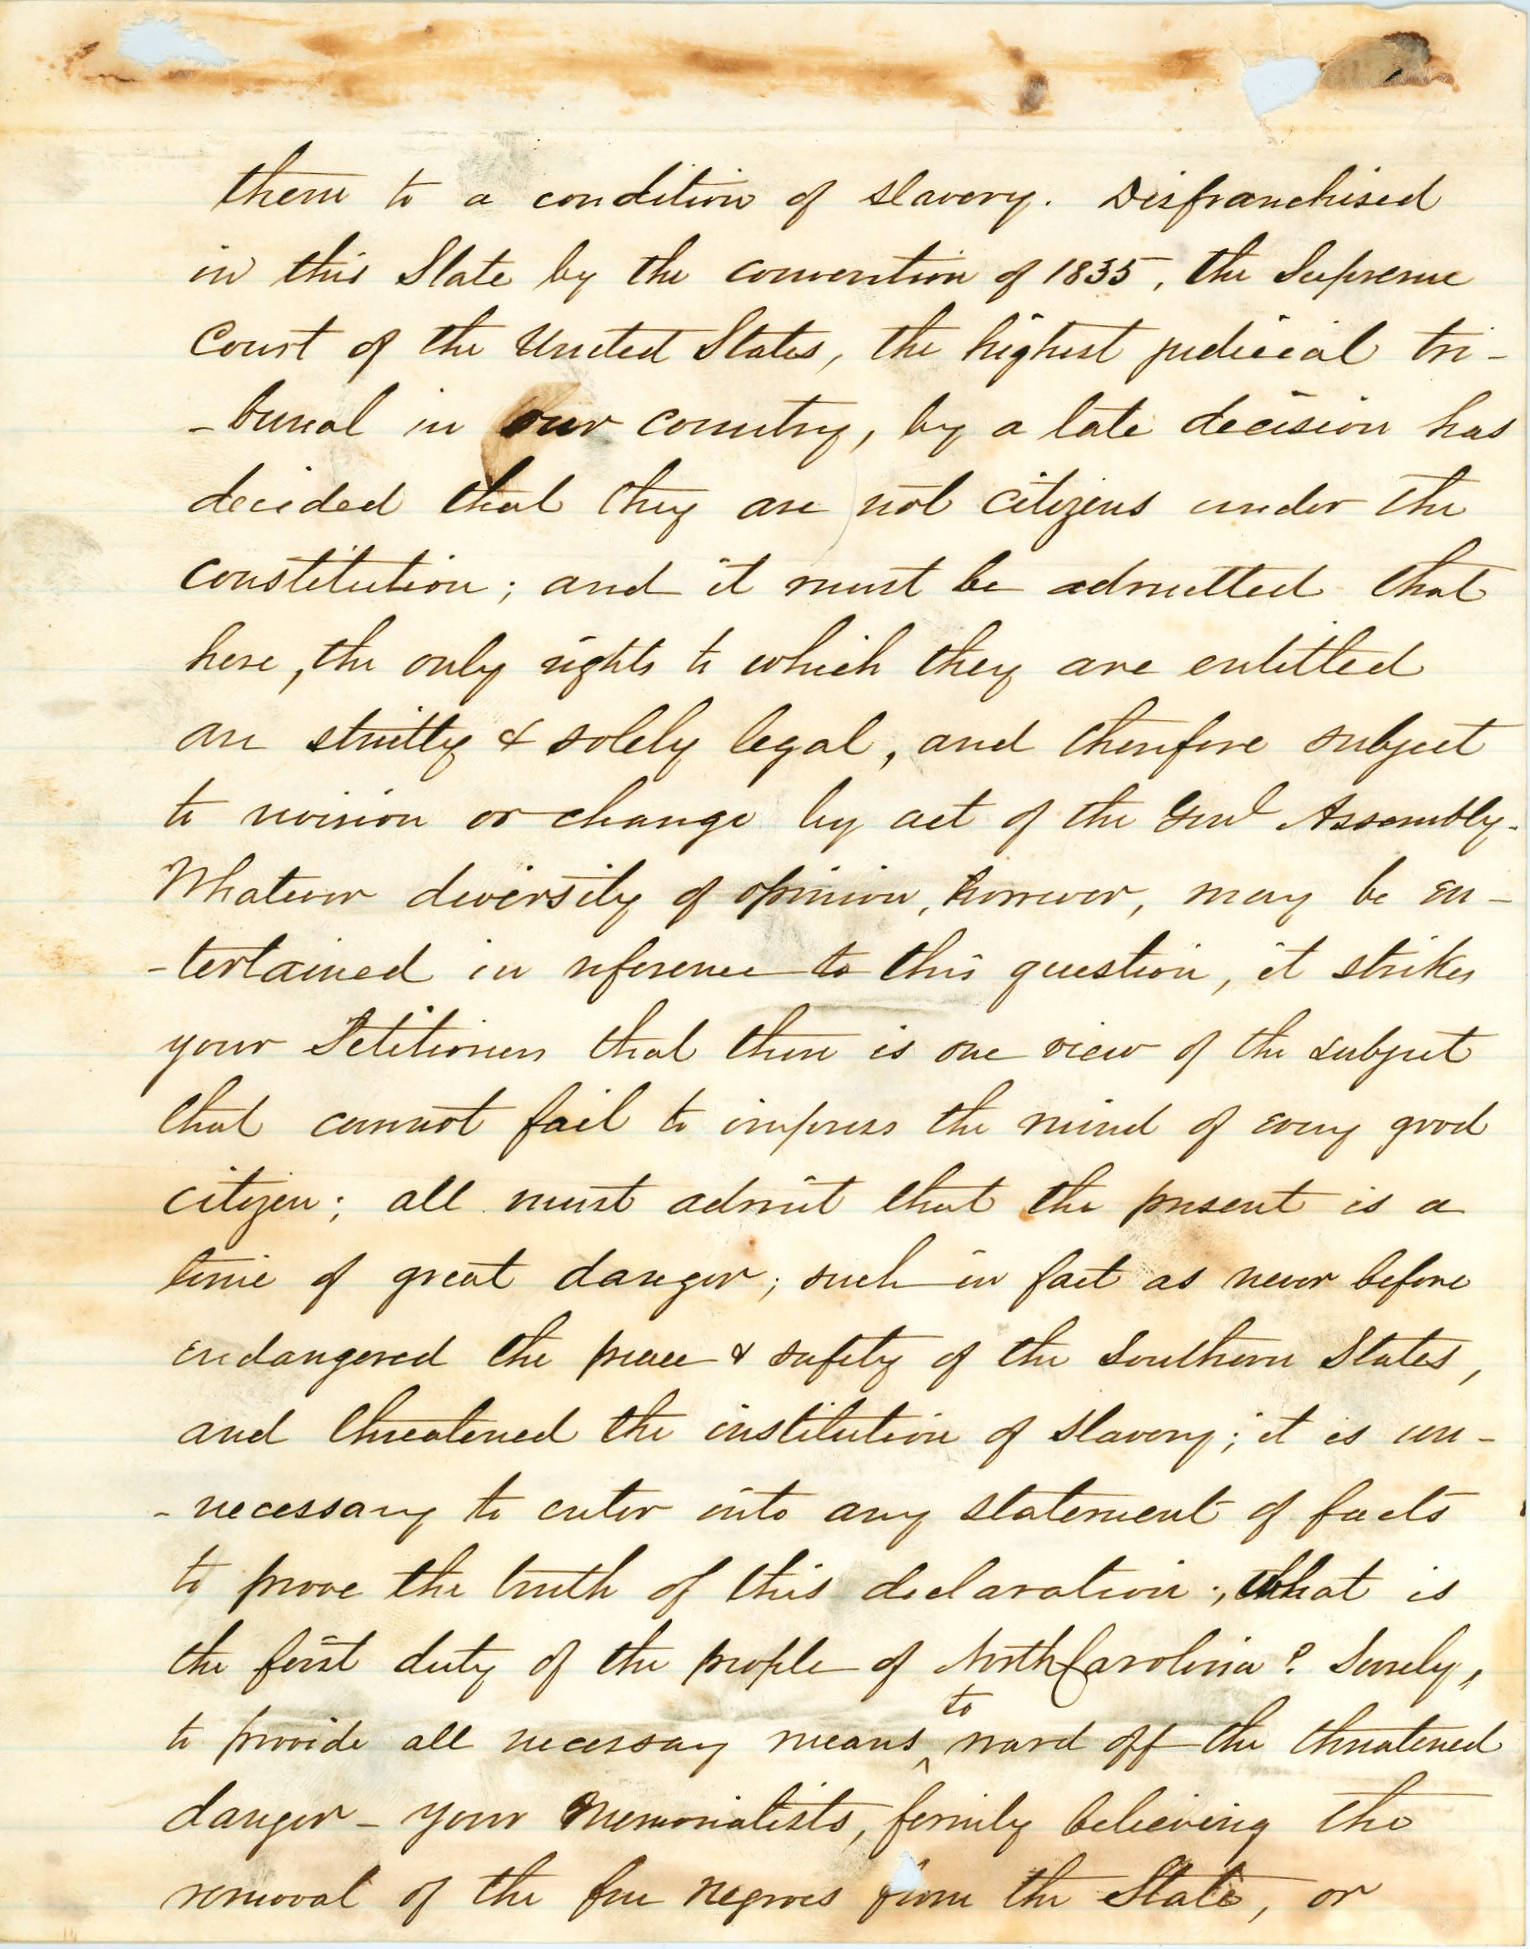 them to a condition of slavery. Disfranchised
in this State by the convention of 1835, the Supreme
Court of the United States, the highest judicial tri-
-bunal in our country, by a late decision has
decided that they are not citizens under the
constitution; and it must be admitted that
here, the only rights to which they are entitled
are strictly & solely legal, and therefore subject
to revision or change by act of the Genl Assembly.
Whatever diversity of opinion, however, may be en-
-tertained in reference to this question, it strikes
your Petitioners that there is one view of the subject
that cannot fail to impress the mind of every good
citizen; all must admit that the present is a
time of great danger; such in fact as never before
endangered the peace & safety of the Southern States,
and threatened the institution of slavery; it is un-
-necessary to enter into any statement of facts
to prove the truth of this declaration; what is
the first duty of the people of North Carolina? Surely,
to provide all necessary means to ward off the threatened
danger - your Memorialists, firmly believing the
removal of the free negroes from the State, or